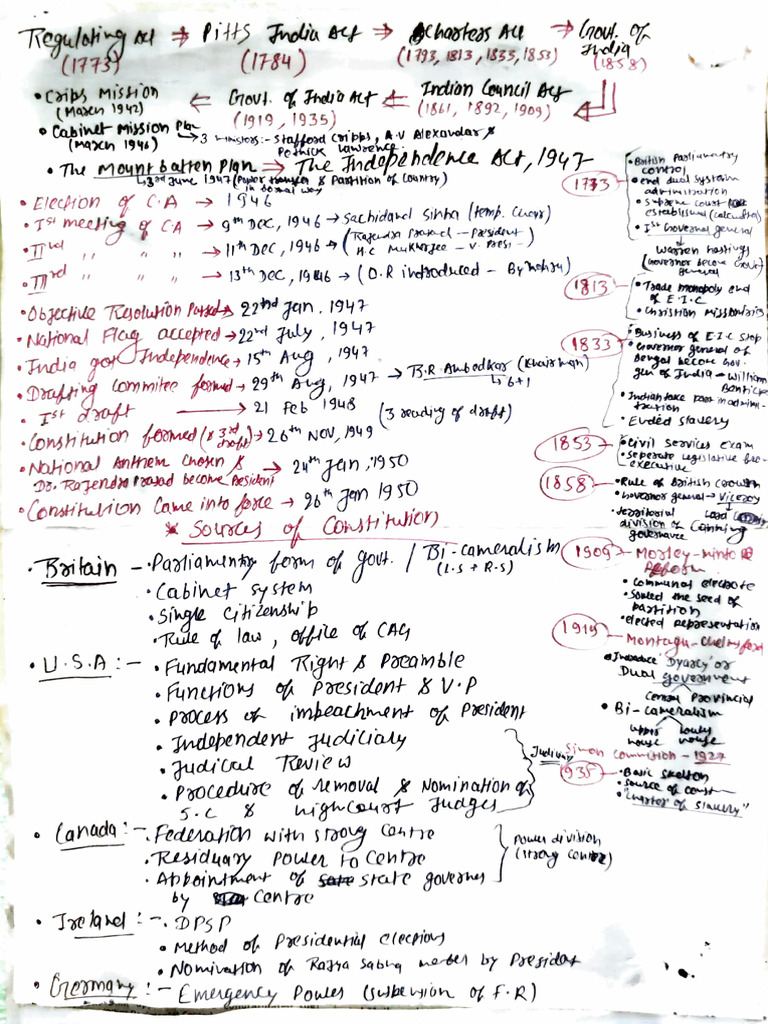 Regulating Act ⇒ Pitts India Act ⇒ Charters Act ⇒ Govt. of India
(1773) (1784) (1793, 1813, 1833, 1853) (1858)
• Crips Mission ⇐ Govt. of India Act ⇐ Indian Council Act
(March 1942) (1919, 1935) (1861, 1892, 1909)
• Cabinet Mission Plan
(March 1946) → 3 ministers:- Stafford Cripps, A.V Alexandar &
Pethick Lawrence.
• The Mountbatten Plan ⇒ The Independence Act, 1947
→ 3rd June 1947 (Power transfer & Partition of Country)
• Election of C.A → 1946
• Ist meeting of CA → 9th Dec, 1946 → Sachidand Sinha (temp. Chair)
• IInd " " " → 11th Dec, 1946 → (Rajendra Prasad - President
H.C Mukherjee - V. Presi-)
• IIIrd " " " → 13th Dec, 1946 → (O.R introduced - By Nehru)
• Objective Resolution Passed → 22nd Jan, 1947
• National Flag accepted → 22nd July, 1947
• India got Independence → 15th Aug, 1947
• Drafting commitee formed → 29th Aug, 1947 → B.R Ambedkar (Chairman)
→ 6+1
• Ist draft → 21 Feb 1948 (3 reading of draft)
• Constitution formed (& 3rd draft) → 26th Nov, 1949
• National Anthem Chosen &
Dr. Rajendra Prasad become President → 24th Jan, 1950
• Constitution Came into force → 26th Jan 1950
* Sources of Constitution
• Britain - • Parliamentry form of govt. / Bi-cameralism
(L.S + R.S)
• Cabinet system
• Single Citizenship
• Rule of law, office of CAG
• U.S.A :- • Fundamental Right & Preamble
• Functions of President & V.P
• Process of impeachment of President
• Independent Judiciary
• Judical Review
• Procedure of removal & Nomination of
S.C & High Court Judges
Judiciary
• Canada :- • Federation with strong Centre
• Residuary Power to Centre
• Appointment of state governer
by Centre
Power division
(strong centre)
• Ireland :- • DPSP
• Method of Presidential elections
• Nomination of Rajya Sabha member by President
• Germany :- • Emergency Power (suspension of F.R)
1773
• British Parliamentry
control
• end dual system
administration
• Supreme court
established (calcutta)
• Ist Governor general
↓
Warren Hastings
1813
• Trade monopoly end
of E.I.C
• Christian missionaries
1833
• Business of E.I.C stop
• Governor general of
Bengal become Gov.
gen of India - William
Bentick
• Indian take part in admini-
tration
• Ended slavery
1853
• Civil services exam
• seperate legislative &
executive
1858
• Rule of British Crown
• Governor general → Viceroy
• territorial Lord
division of Canning
governance
1909 → Morley-minto
Reform
• Communal electrote
• Sowed the seed of
partition
• elected representation
1919 → Montagu-Chelmsford
• Introduce 'Dyarcy' or
Dual government
Central Provincial
• Bi-cameralism
upper lower
house house
Simon commission - 1927
1935
• Basic skelton
• source of const-
• "Charter of slavery"